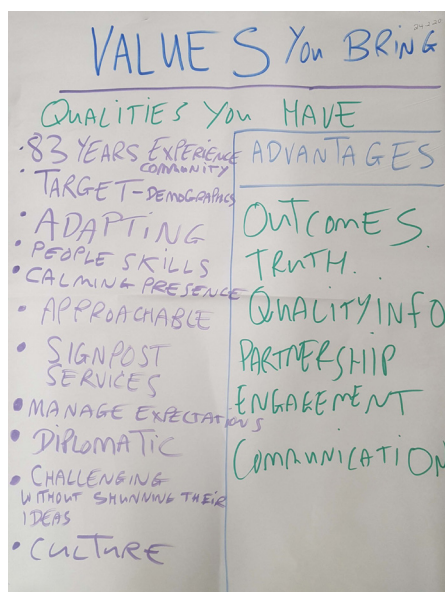 24.2.20
VALUES YOU BRING
QUALITIES YOU HAVE
• 83 YEARS EXPERIENCE
COMMUNITY
TARGET-DEMOGRAPHICS
• ADAPTING
• PEOPLE SKILLS
• CALMING PRESENCE
• APPROACHABLE
• SIGNPOST
SERVICES
• MANAGE EXPECTATIONS
• DIPLOMATIC
• CHALLENGING
WITHOUT SHUNNING THEIR
IDEAS
• CULTURE
ADVANTAGES
OUTCOMES.
TRUTH.
QUALITY INFO
PARTNERSHIP
ENGAGEMENT
COMMUNICATION